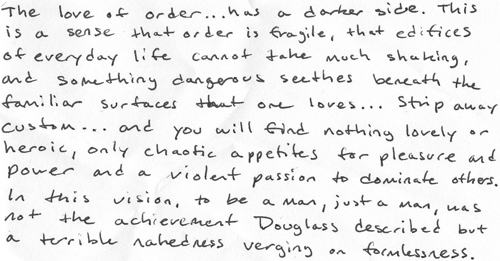 The love of order...has a darker side. This
is a sense that order is fragile, that edifices
of everyday life cannot take much shaking,
and something dangerous seethes beneath the
familiar surfaces that one loves... Strip away
custom... and you will find nothing lovely or
heroic, only chaotic appetites for pleasure and
power and a violent passion to dominate others.
In this vision, to be a man, just a man, was
not the achievement Douglass described but
a terrible nakedness verging on formlessness.